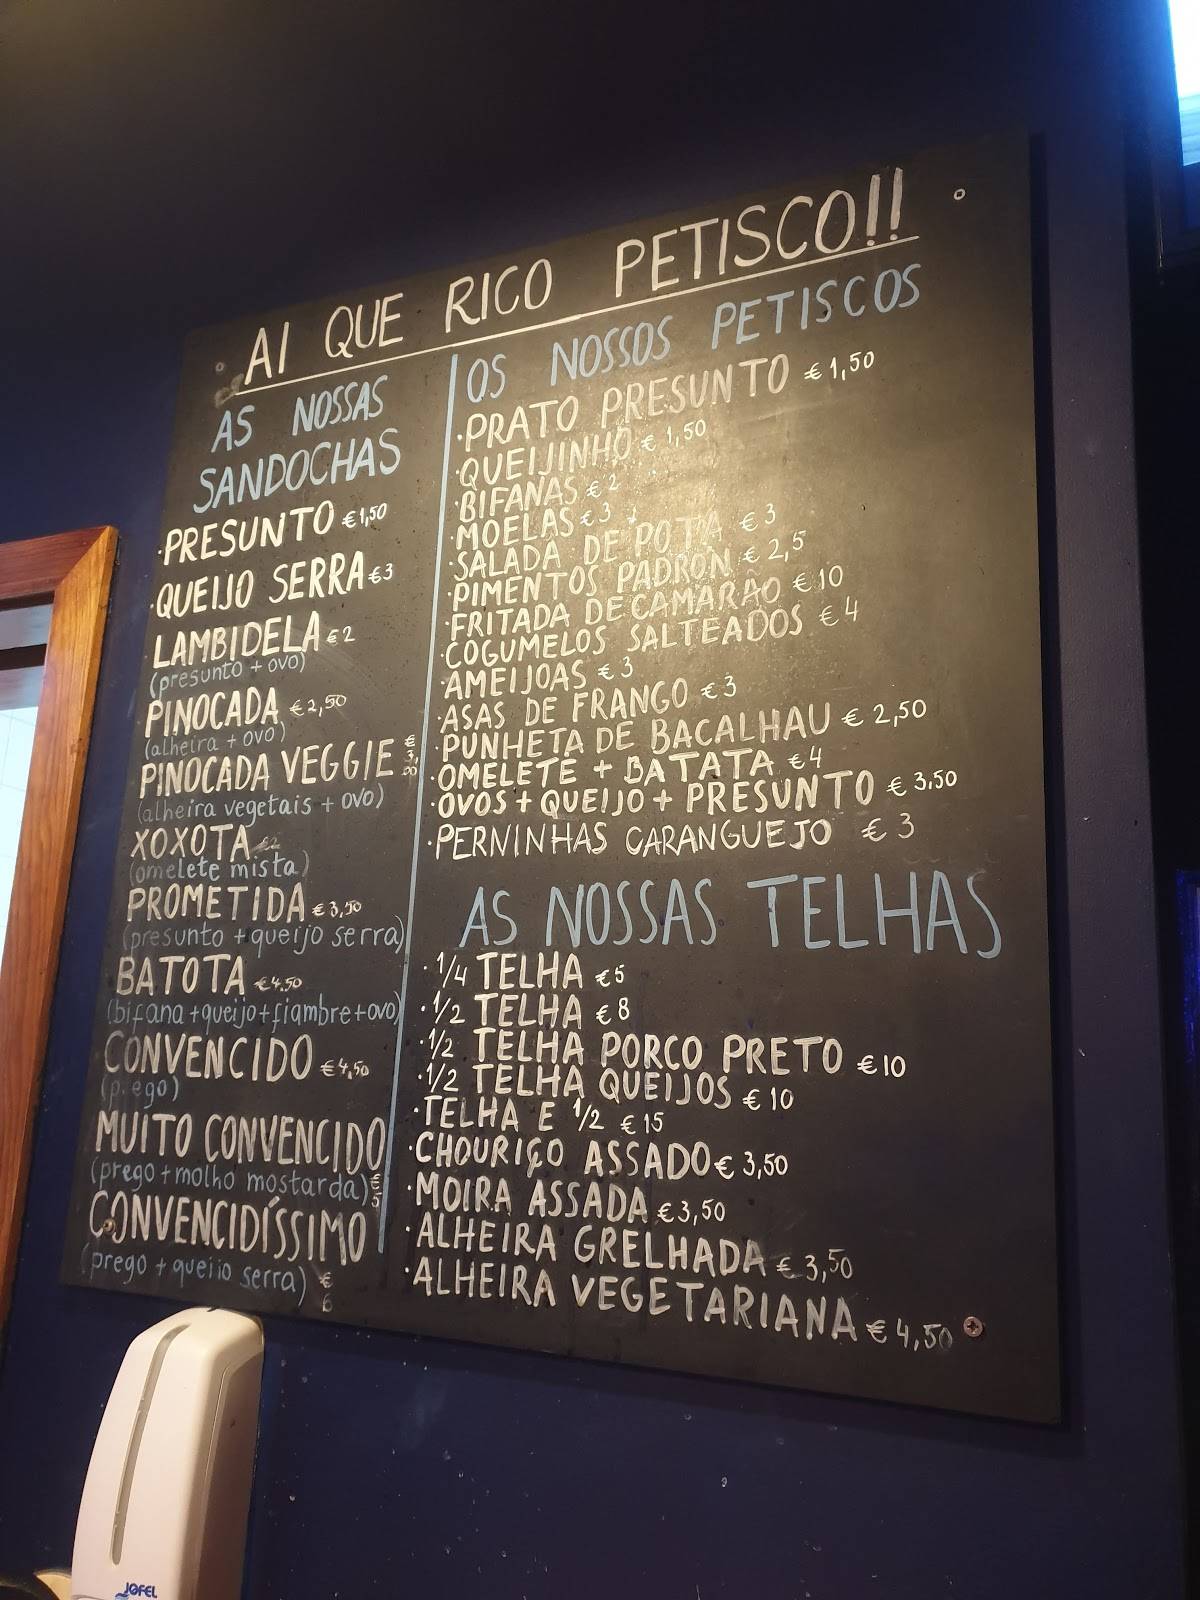 AI QUE RICO PETISCO!!
AS NOSSAS
SANDOCHAS
·PRESUNTO €1,50
·QUEIJO SERRA €3
LAMBIDELA €2
(presunto + ovo)
PINOCADA €2,50
(alheira + ovo)
PINOCADA VEGGIE €3,00
(alheira vegetais + ovo)
XOXOTA €2
(omelete mista)
PROMETIDA €3,50
(presunto + queijo serra)
BATOTA €4.50
(bifana+queijo+fiambre+ovo)
CONVENCIDO €4,50
(prego)
MUITO CONVENCIDO
(prego + molho mostarda) €5
CONVENCIDÍSSIMO
(prego + queijo serra) €6
OS NOSSOS PETISCOS
·PRATO PRESUNTO €1,50
·QUEIJINHO €1,50
·BIFANAS €2
·MOELAS €3
·SALADA DE POTA €3
·PIMENTOS PADRÓN €2,5
·FRITADA DE CAMARÃO €10
·COGUMELOS SALTEADOS €4
·AMEIJOAS €3
·ASAS DE FRANGO €3
·PUNHETA DE BACALHAU €2,50
·OMELETE + BATATA €4
·OVOS + QUEIJO + PRESUNTO €3,50
·PERNINHAS CARANGUEJO €3
AS NOSSAS TELHAS
·1/4 TELHA €5
·1/2 TELHA €8
·1/2 TELHA PORCO PRETO €10
·1/2 TELHA QUEIJOS €10
·TELHA E 1/2 €15
·CHOURIÇO ASSADO €3,50
·MOIRA ASSADA €3,50
·ALHEIRA GRELHADA €3,50
·ALHEIRA VEGETARIANA €4,50
JOFEL